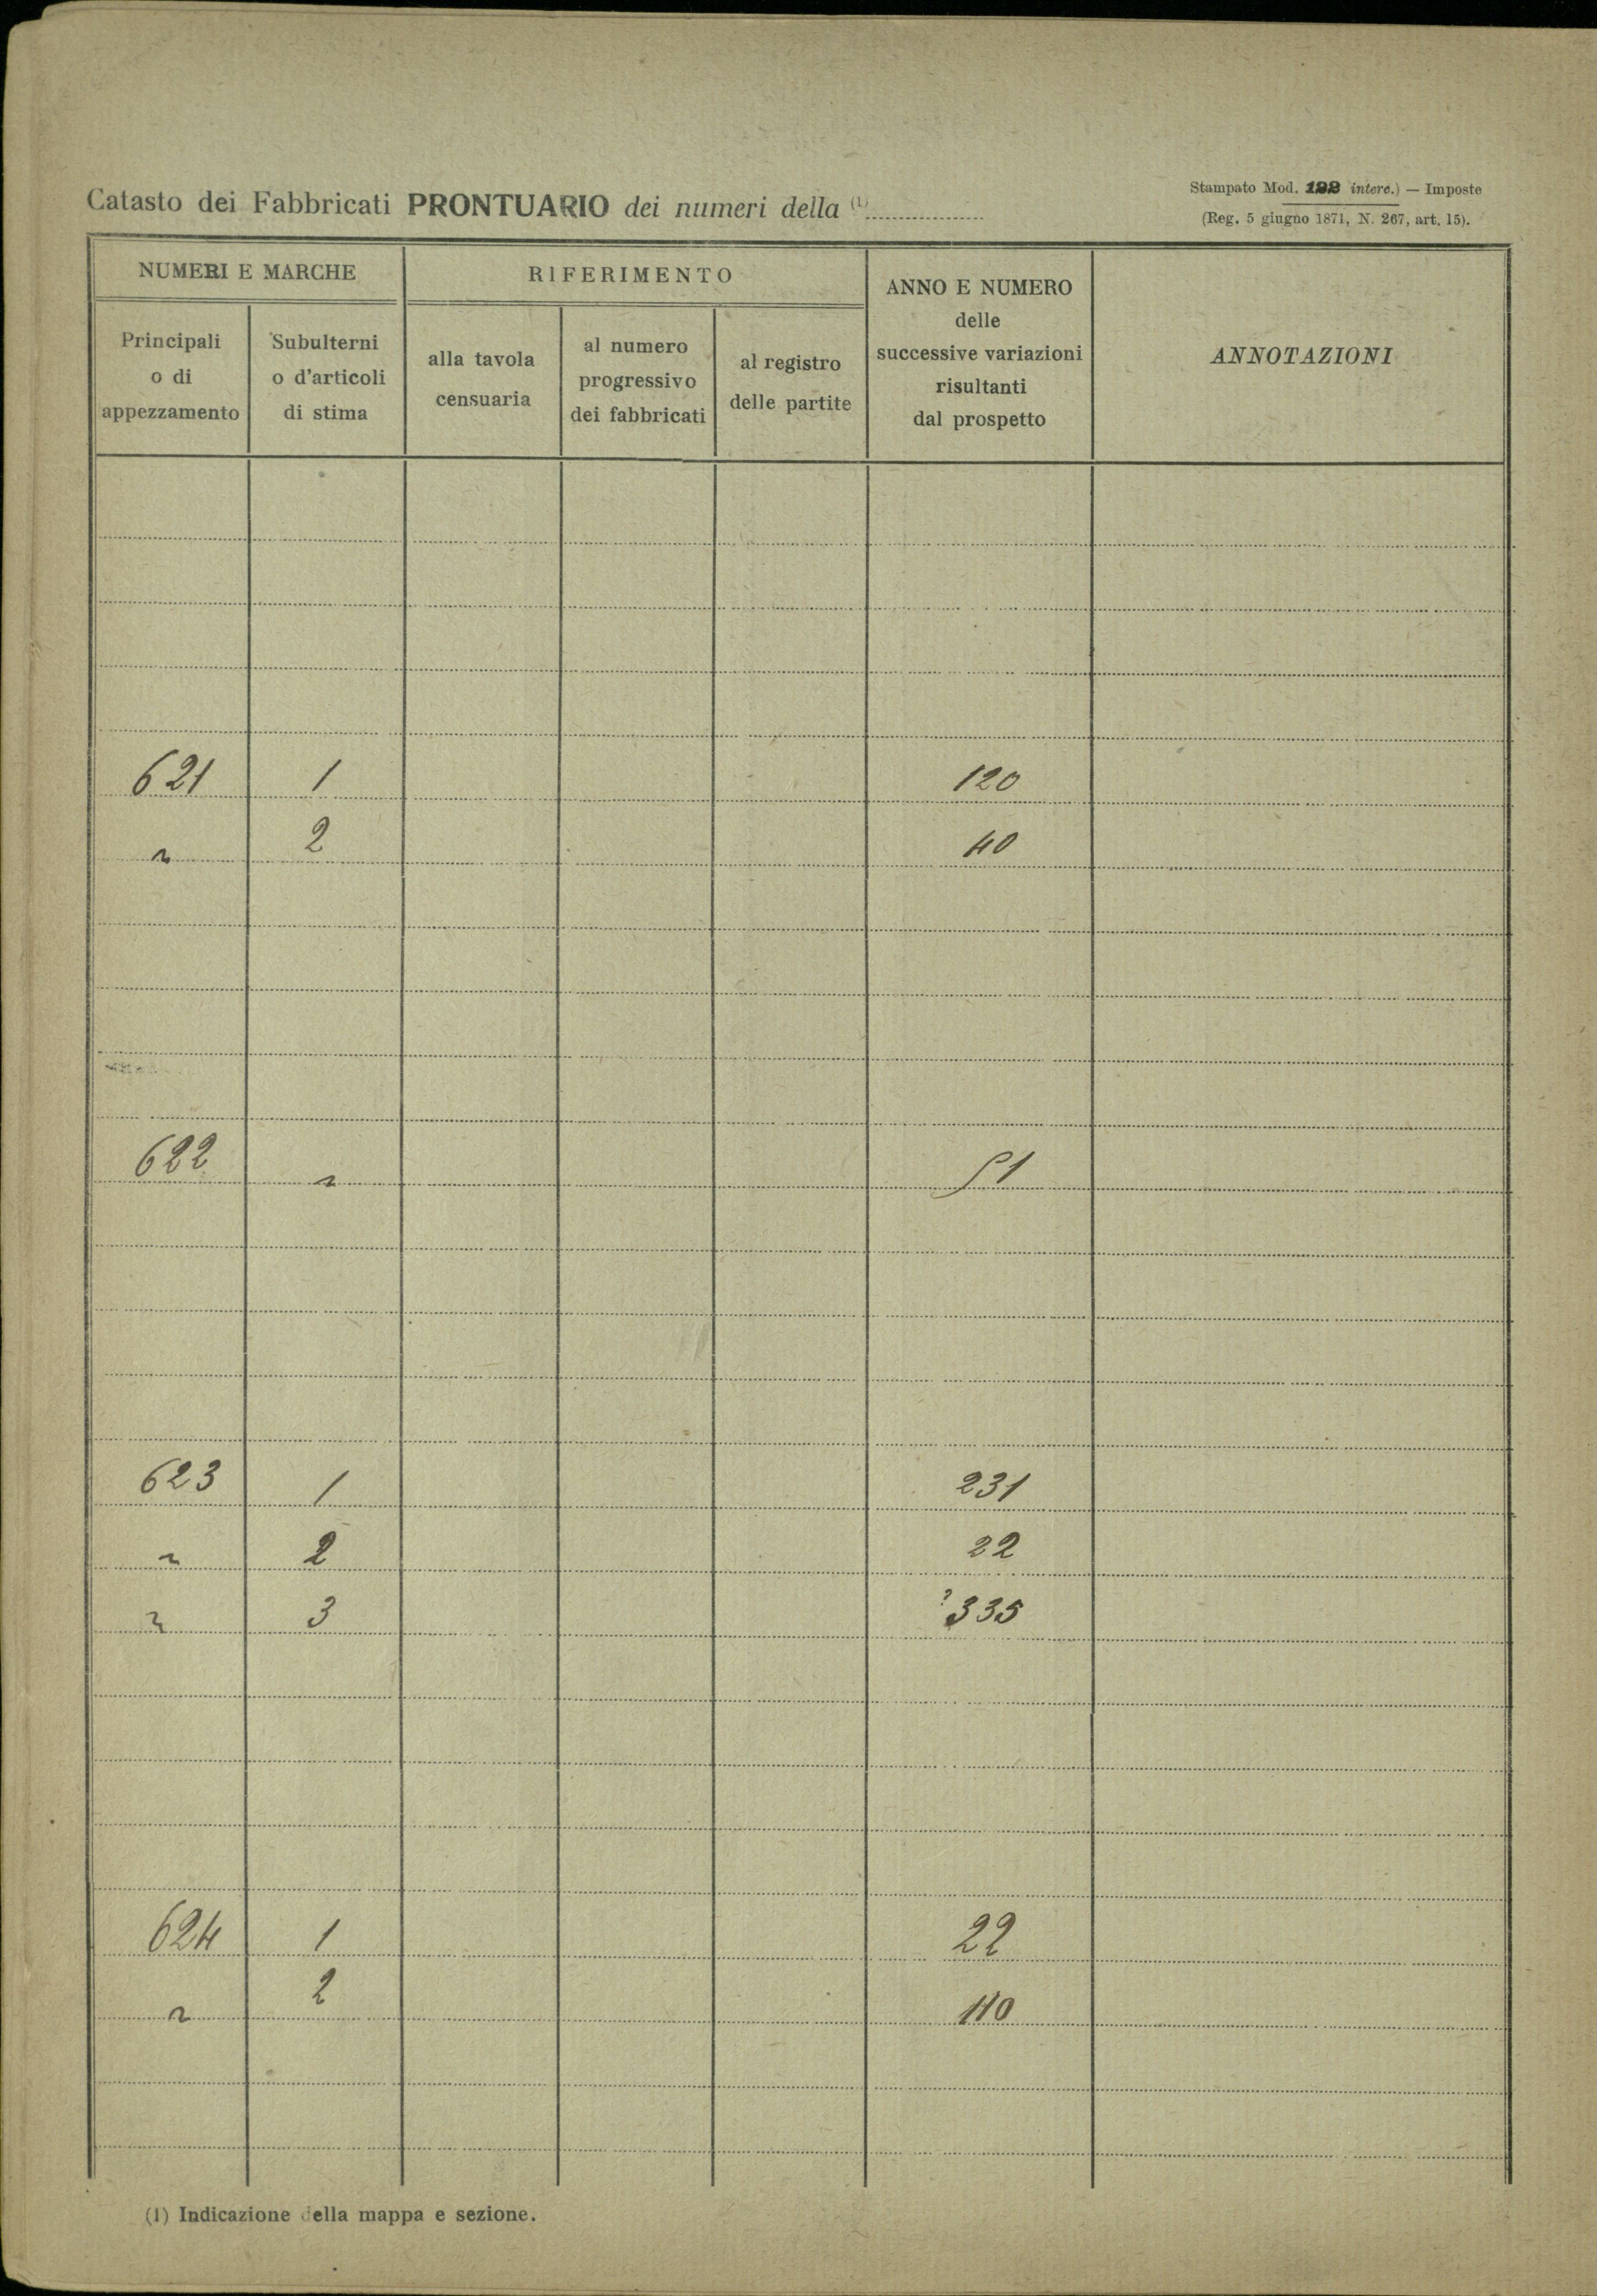 Catasto dei Fabbricati PRONTUARIO dei numeri della (1)
Stampato Mod. 122 interc.) — Imposte
(Reg. 5 giugno 1871, N. 267, art. 15).
NUMERI E MARCHE
RIFERIMENTO
ANNO E NUMERO
delle
successive variazioni
risultanti
dal prospetto
ANNOTAZIONI
Principali
o di
appezzamento
Subulterni
o d'articoli
di stima
alla tavola
censuaria
al numero
progressivo
dei fabbricati
al registro
delle partite
621 1 120
" 2 40
622 " 51
623 1 231
" 2 22
" 3 ? 335
624 1 22
" 2
(1) Indicazione della mappa e sezione.